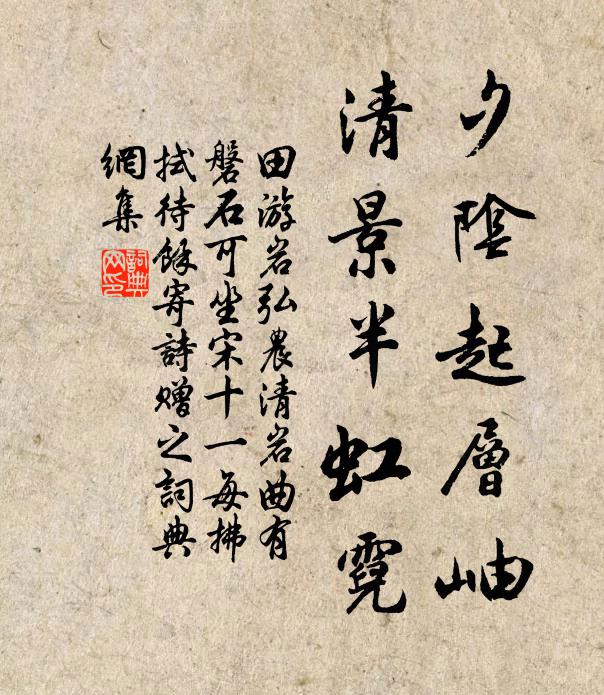 夕陰起層岫
清景半虹霓
田游岩弘農清岩曲有
磐石可坐宋十一每拂
拭待餘寄詩贈之詞典
網集
詞典
网印